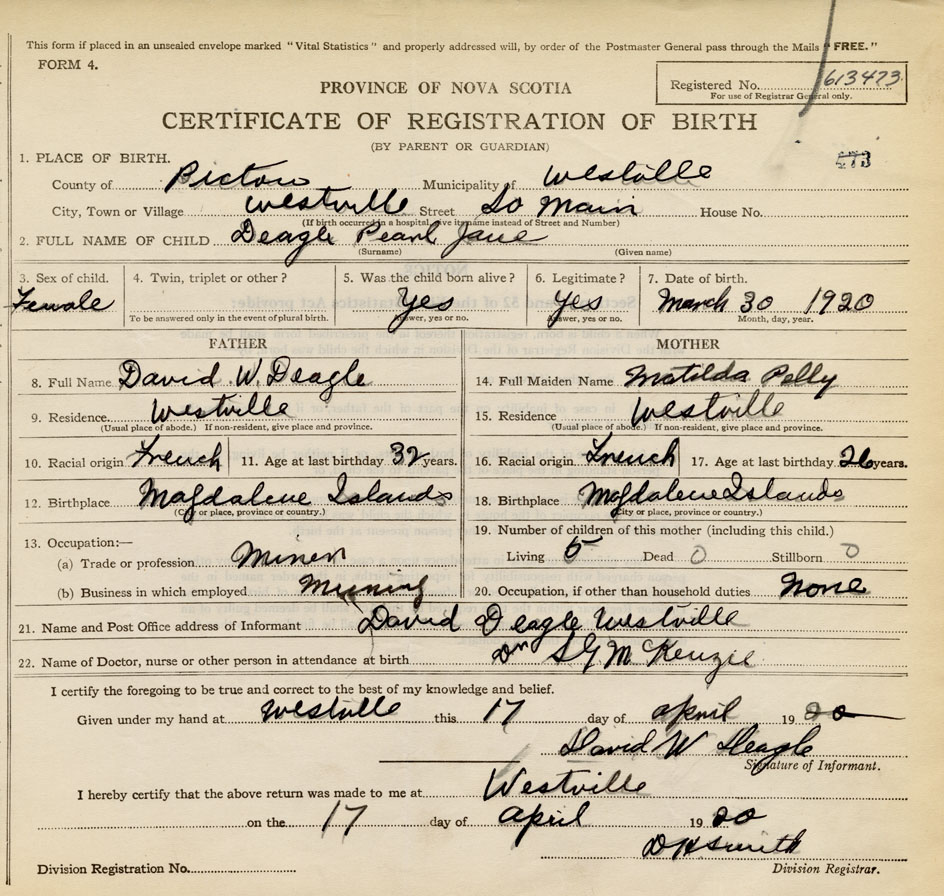 This form if placed in an unsealed envelope marked "Vital Statistics" and properly addressed will, by order of the Postmaster General pass through the Mails "FREE."
FORM 4.
Registered No. 613473
For use of Registrar General only.
PROVINCE OF NOVA SCOTIA
CERTIFICATE OF REGISTRATION OF BIRTH
(BY PARENT OR GUARDIAN)
473
1. PLACE OF BIRTH.
County of Pictou Municipality of Westville
City, Town or Village Westville Street So Main House No.
(If birth occurred in a hospital, give its name instead of Street and Number)
2. FULL NAME OF CHILD Deagle Pearl Jane
(Surname) (Given name)
3. Sex of child. 4. Twin, triplet or other? 5. Was the child born alive? 6. Legitimate? 7. Date of birth.
Female Yes Yes March 30 1920
To be answered only in the event of plural birth. Answer, yes or no. Answer, yes or no. Month, day, year.
FATHER MOTHER
8. Full Name David W. Deagle 14. Full Maiden Name Matilda Pelly
9. Residence Westville 15. Residence Westville
(Usual place of abode.) If non-resident, give place and province. (Usual place of abode.) If non-resident, give place and province.
10. Racial origin French 11. Age at last birthday 32 years. 16. Racial origin French 17. Age at last birthday 26 years.
12. Birthplace Magdalene Islands 18. Birthplace Magdalene Islands
(City or place, province or country.) (City or place, province or country.)
13. Occupation:— 19. Number of children of this mother (including this child.)
(a) Trade or profession Miner Living 5 Dead 0 Stillborn 0
(b) Business in which employed Mining 20. Occupation, if other than household duties None
21. Name and Post Office address of Informant David Deagle Westville
22. Name of Doctor, nurse or other person in attendance at birth Dr S G McKenzie
I certify the foregoing to be true and correct to the best of my knowledge and belief.
Given under my hand at Westville this 17 day of April 1920
David W Deagle
Signature of Informant.
I hereby certify that the above return was made to me at Westville
on the 17 day of April 1920
D H Smith
Division Registration No. Division Registrar.